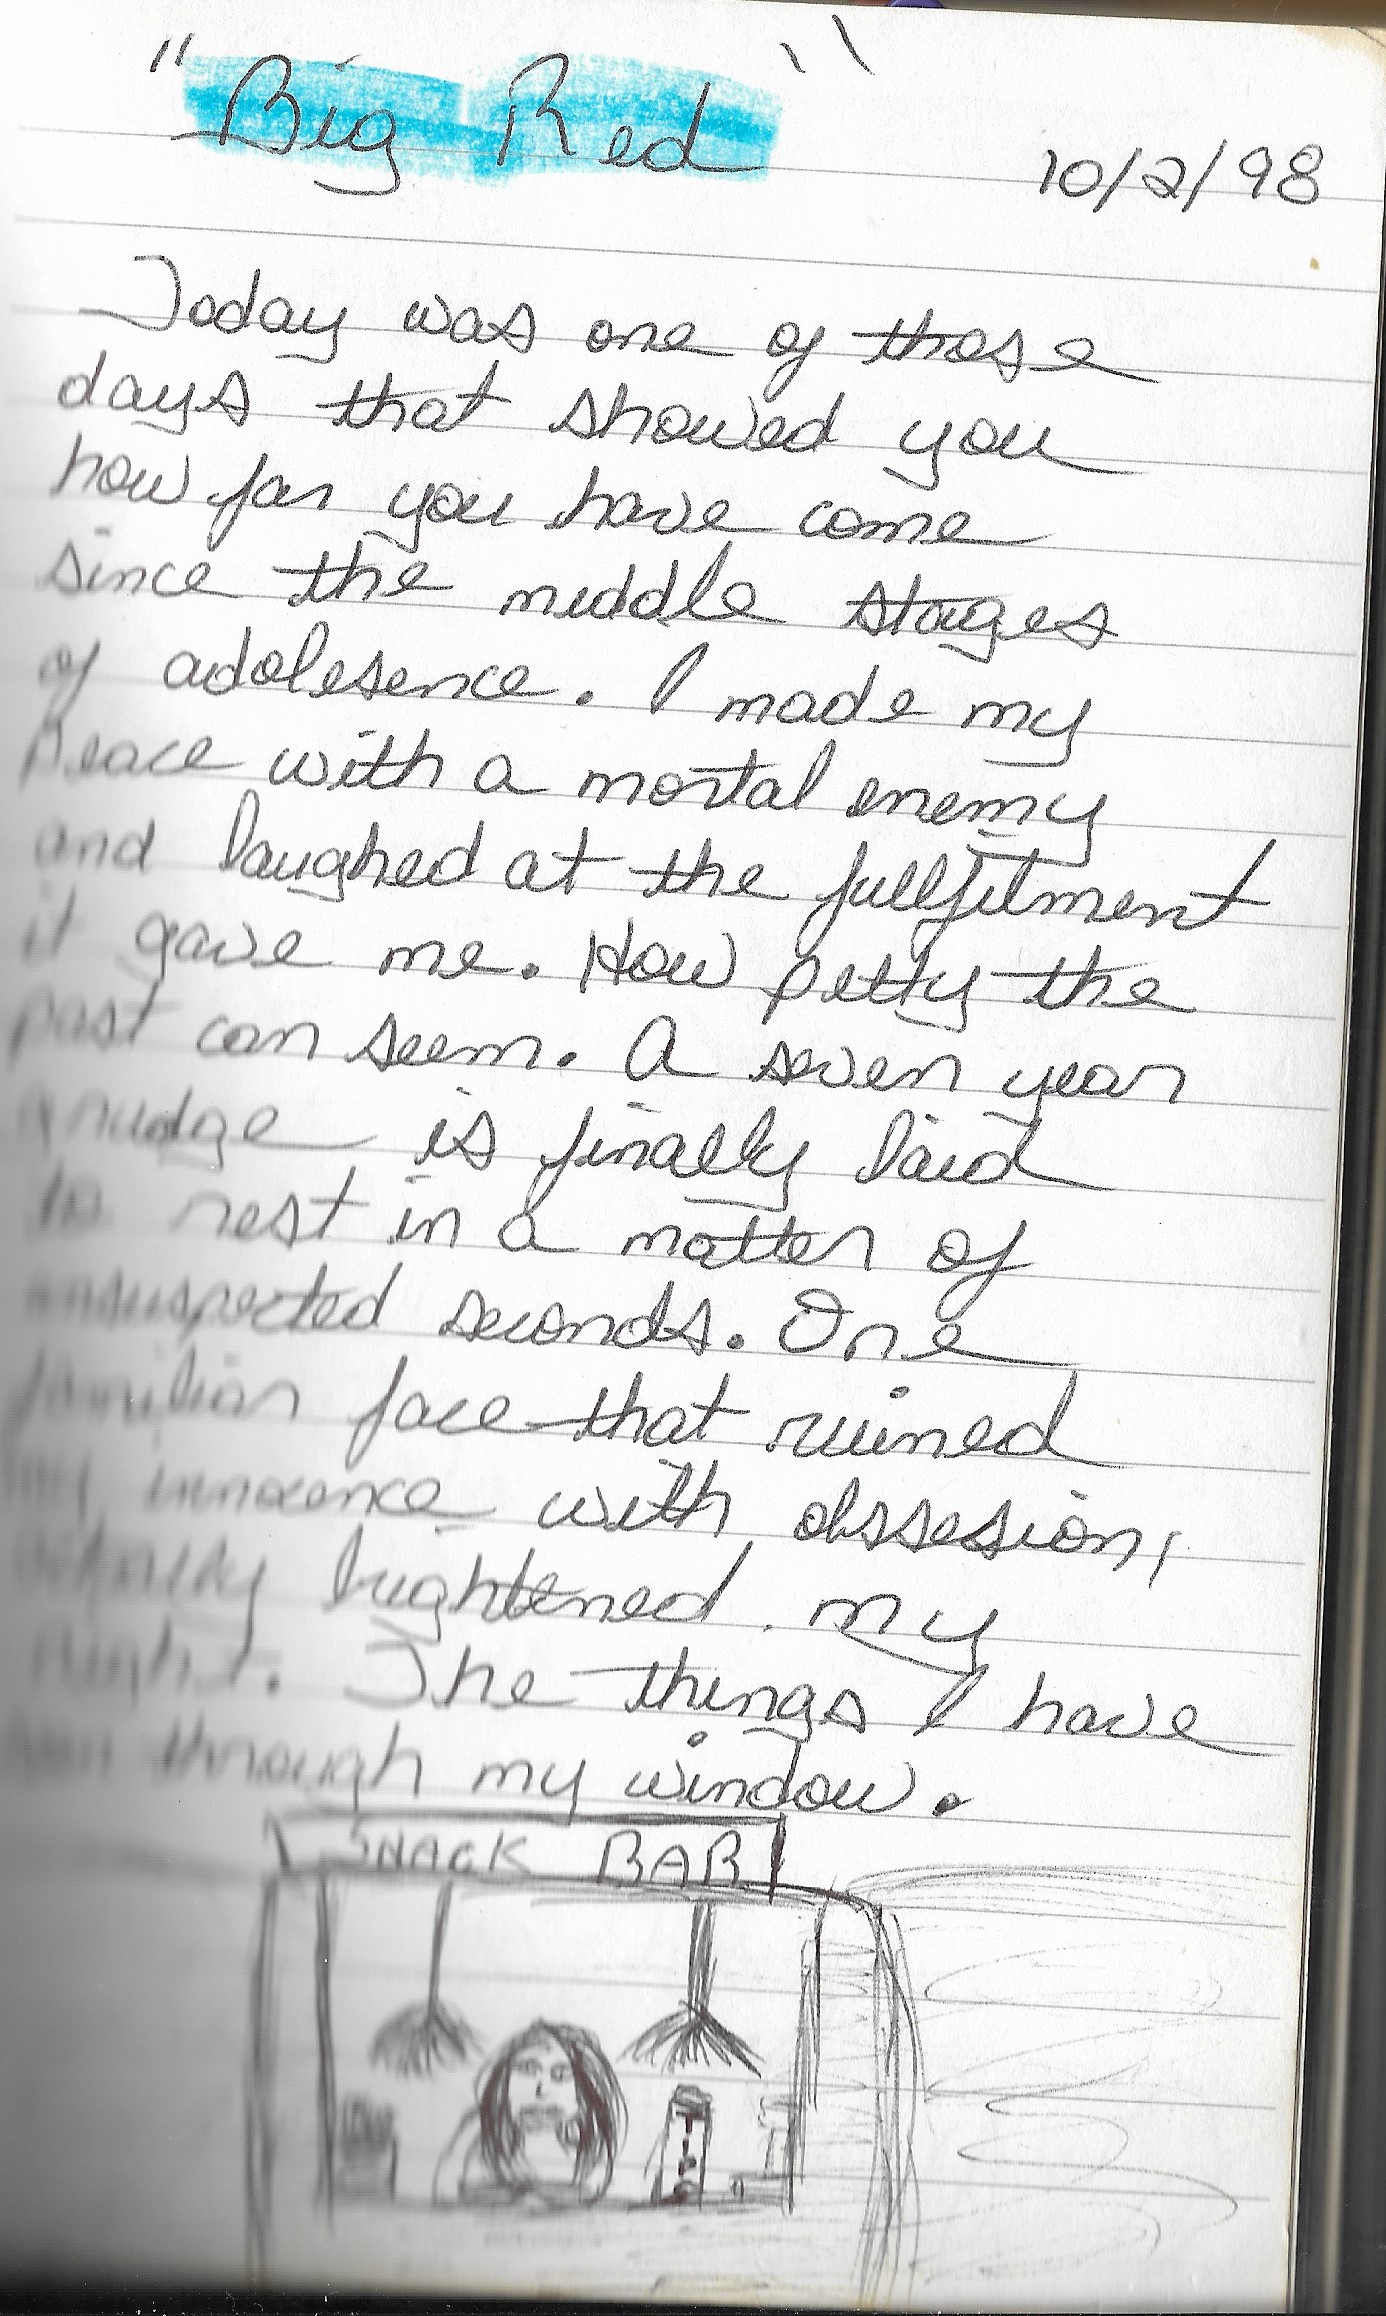 "Big Red"
10/2/98
Today was one of those
days that showed you
how far you have come
since the middle stages
of adolesence. I made my
peace with a mortal enemy
and laughed at the fullfilment
it gave me. How petty the
past can seem. A seven year
grudge is finally laid
to rest in a matter of
unsuspected seconds. One
familiar face that ruined
my innocence with obssesion,
brightened my
night. The things I have
through my window.
SNACK BAR
TIPS